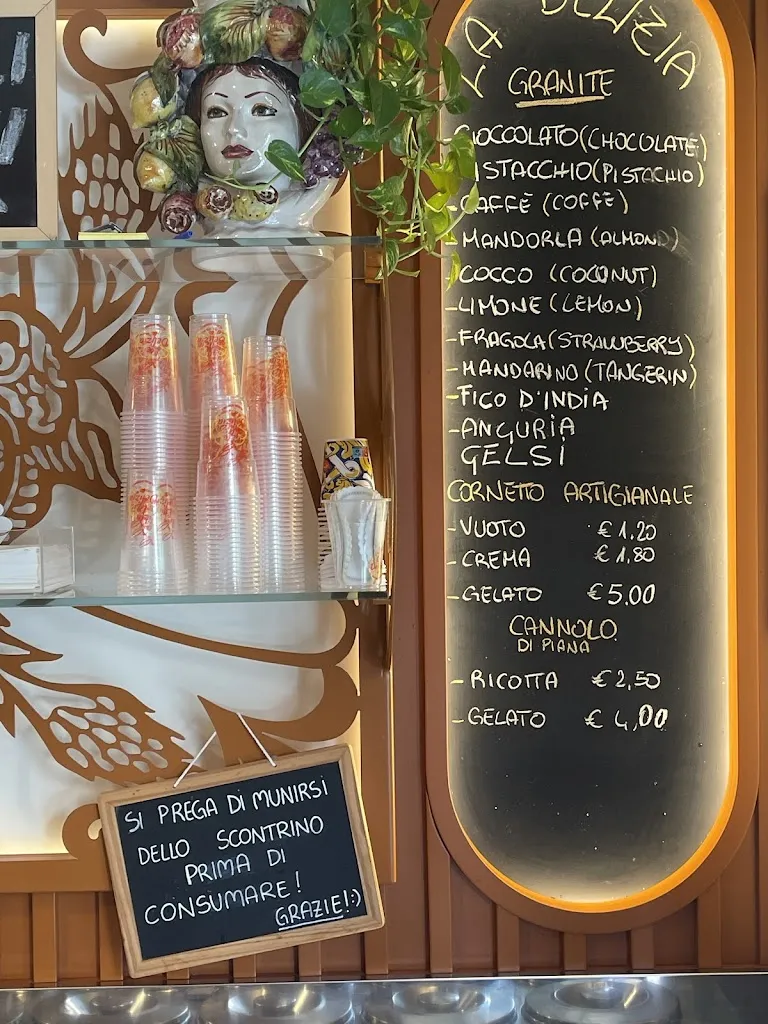 LA DELIZIA
GRANITE
CIOCCOLATO (CHOCOLATE)
PISTACCHIO (PISTACHIO)
-CAFFÈ (COFFÈ)
-MANDORLA (ALMOND)
-COCCO (COCONUT)
-LIMONE (LEMON)
-FRAGOLA (STRAWBERRY)
-MANDARINO (TANGERIN)
-FICO D'INDIA
-ANGURIA
GELSI
CORNETO ARTIGIANALE
-VUOTO €1.20
-CREMA €1,80
-GELATO €5.00
CANNOLO
DI PIANA
-RICOTTA €2,50
-GELATO €4,00
SI PREGA DI MUNIRSI
DELLO SCONTRINO
PRIMA DI
CONSUMARE!
GRAZIE! :)